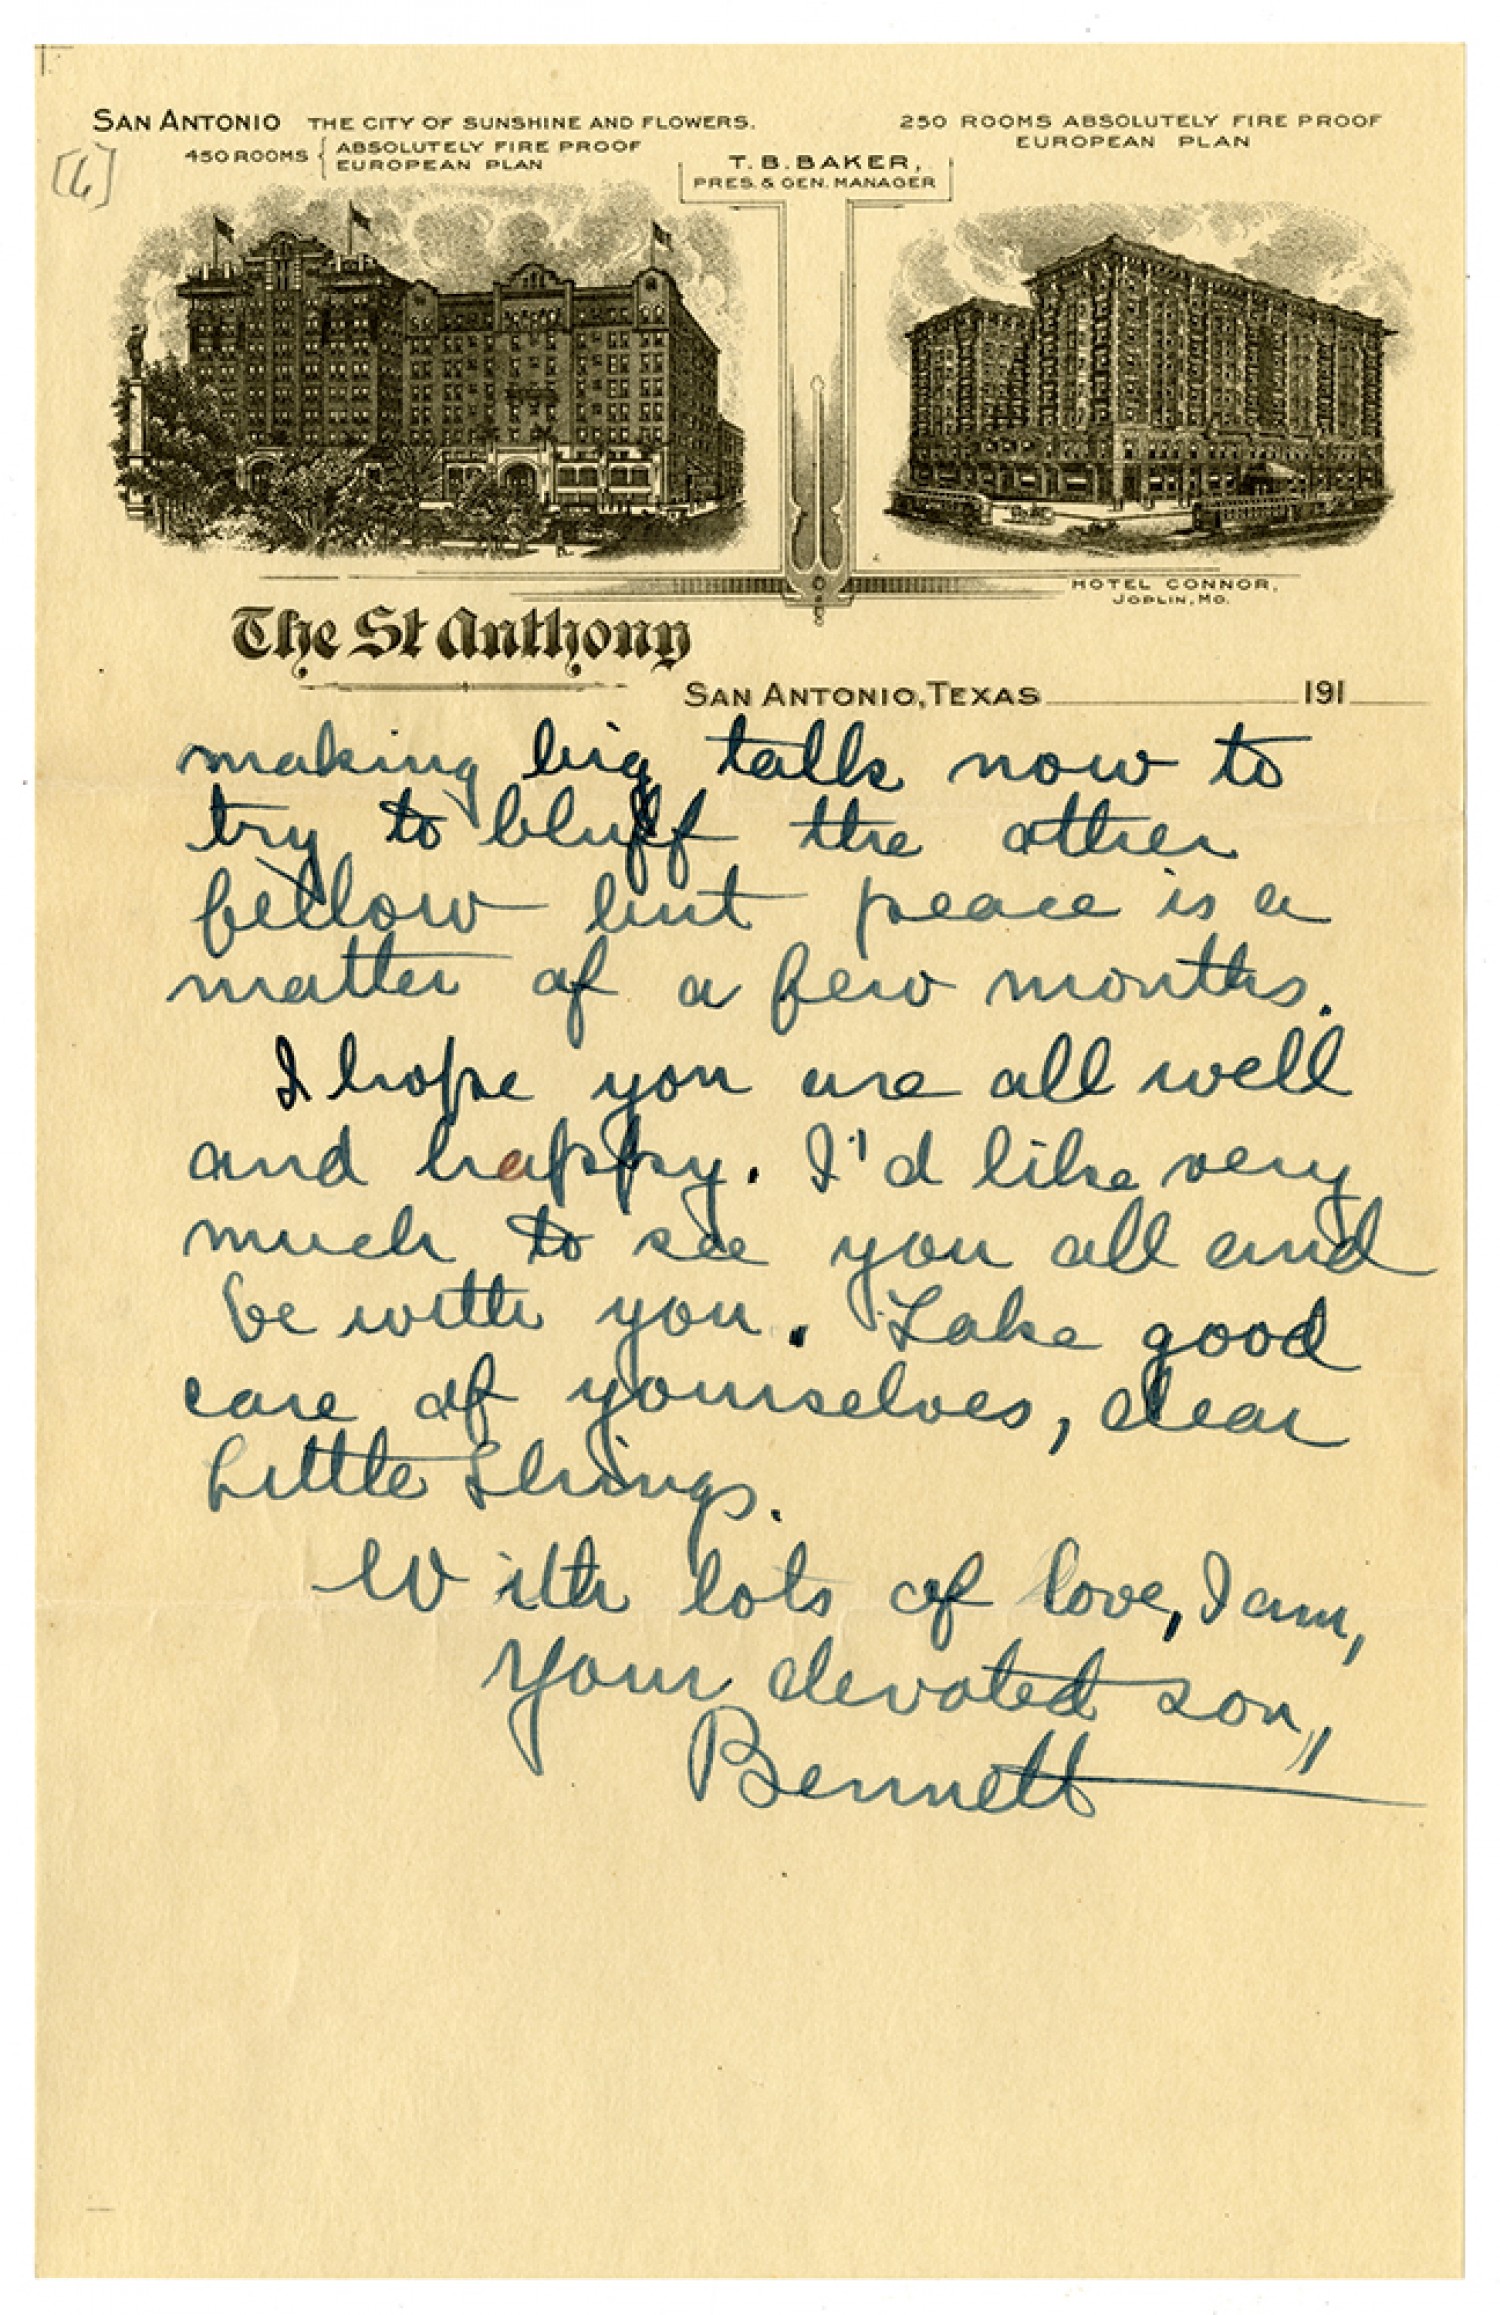 SAN ANTONIO THE CITY OF SUNSHINE AND FLOWERS.
450 ROOMS { ABSOLUTELY FIRE PROOF
EUROPEAN PLAN
[6]
T. B. BAKER,
PRES. & GEN. MANAGER
250 ROOMS ABSOLUTELY FIRE PROOF
EUROPEAN PLAN
HOTEL CONNOR,
JOPLIN, MO.
The St Anthony
SAN ANTONIO, TEXAS 191
making big talk now to
try to bluff the other
fellow but peace is a
matter of a few months.
I hope you are all well
and happy. I'd like very
much to see you all and
be with you. Take good
care of yourselves, dear
Little Things.
With lots of love, I am,
Your devoted son,
Bennett